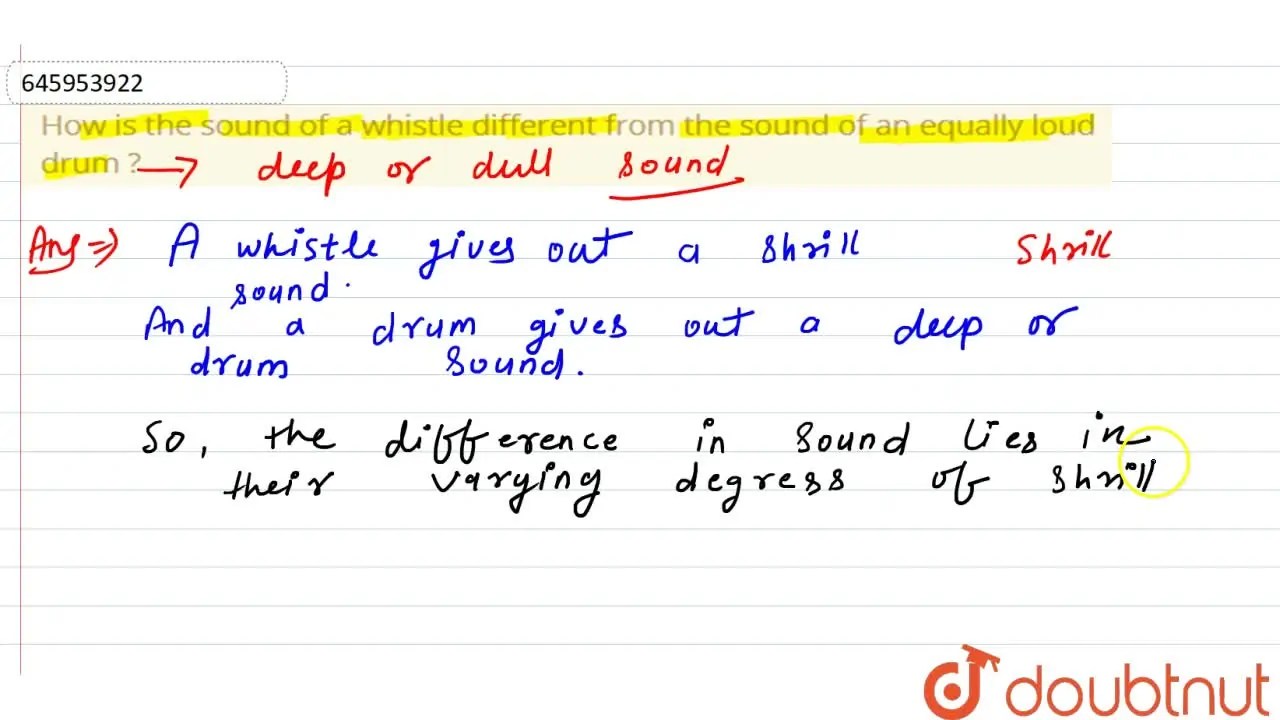 645953922
How is the sound of a whistle different from the sound of an equally loud
drum ? → deep or dull sound
Ans ⇒ A whistle gives out a shrill Shrill
sound.
And a drum gives out a deep or
drum sound.
So, the difference in sound lies in
their varying degress of shrill
doubtnut